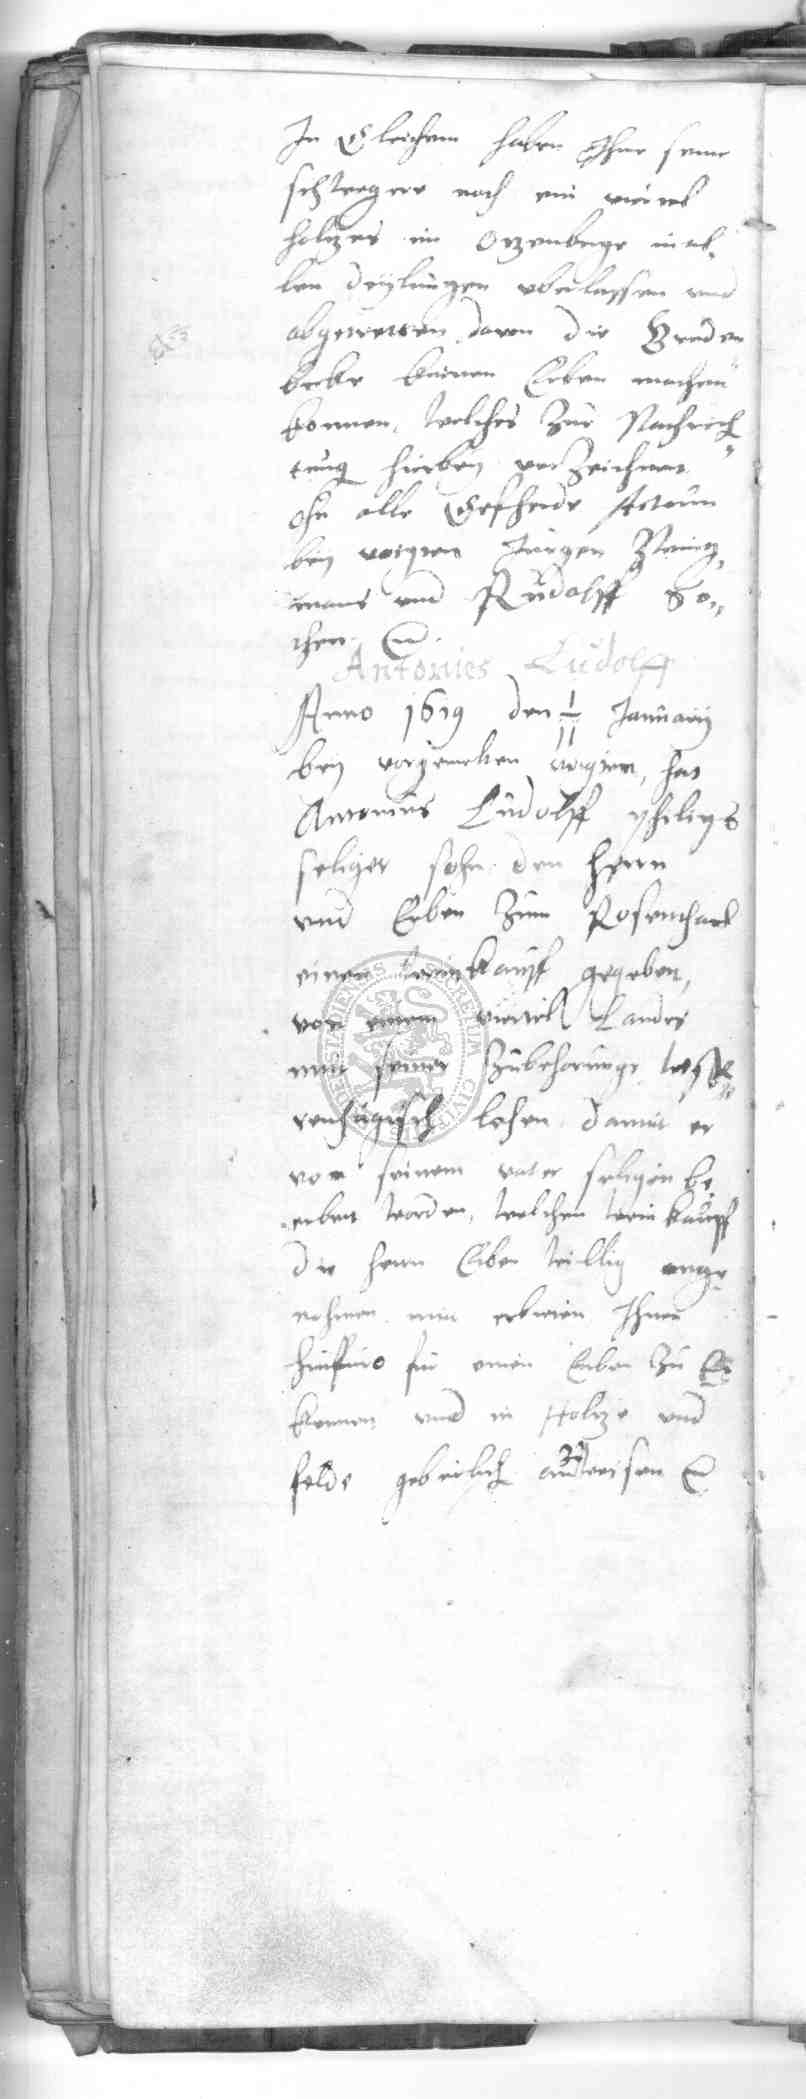 In Gleichem haben Ihne seine
schwegere noch ein viertel
holtzes im Orzenberge in al„
len deylungen uberlassen und
abgetretten, daran die Breden
becke keinen Erben machen
konnen, welches zur Nachrich„
tung hierbey verzeichnet
ohn alle Gefherde Actum
bey
mans und Rudolff Bo„
chen
Antonies Ludolff
Anno 1619 den 1/11 January
bey vorgemelten, hat
Antonius Ludolff philips
seliger sohn den herrn
und Erben Zum Rosenthael
einen weinkauff gegeben,
von einem viertel Landes
mit seiner Zubehorunge
lehen damit er
von seinem vater seligen be„
erbet worden, welchen weinkauff
die herrn Erben willig ange„
nohmen mit erbieten Ihnen
hinfuro für einen Erben zu Er„
kennen und in Holtze und
felde geburlich anZuweisen